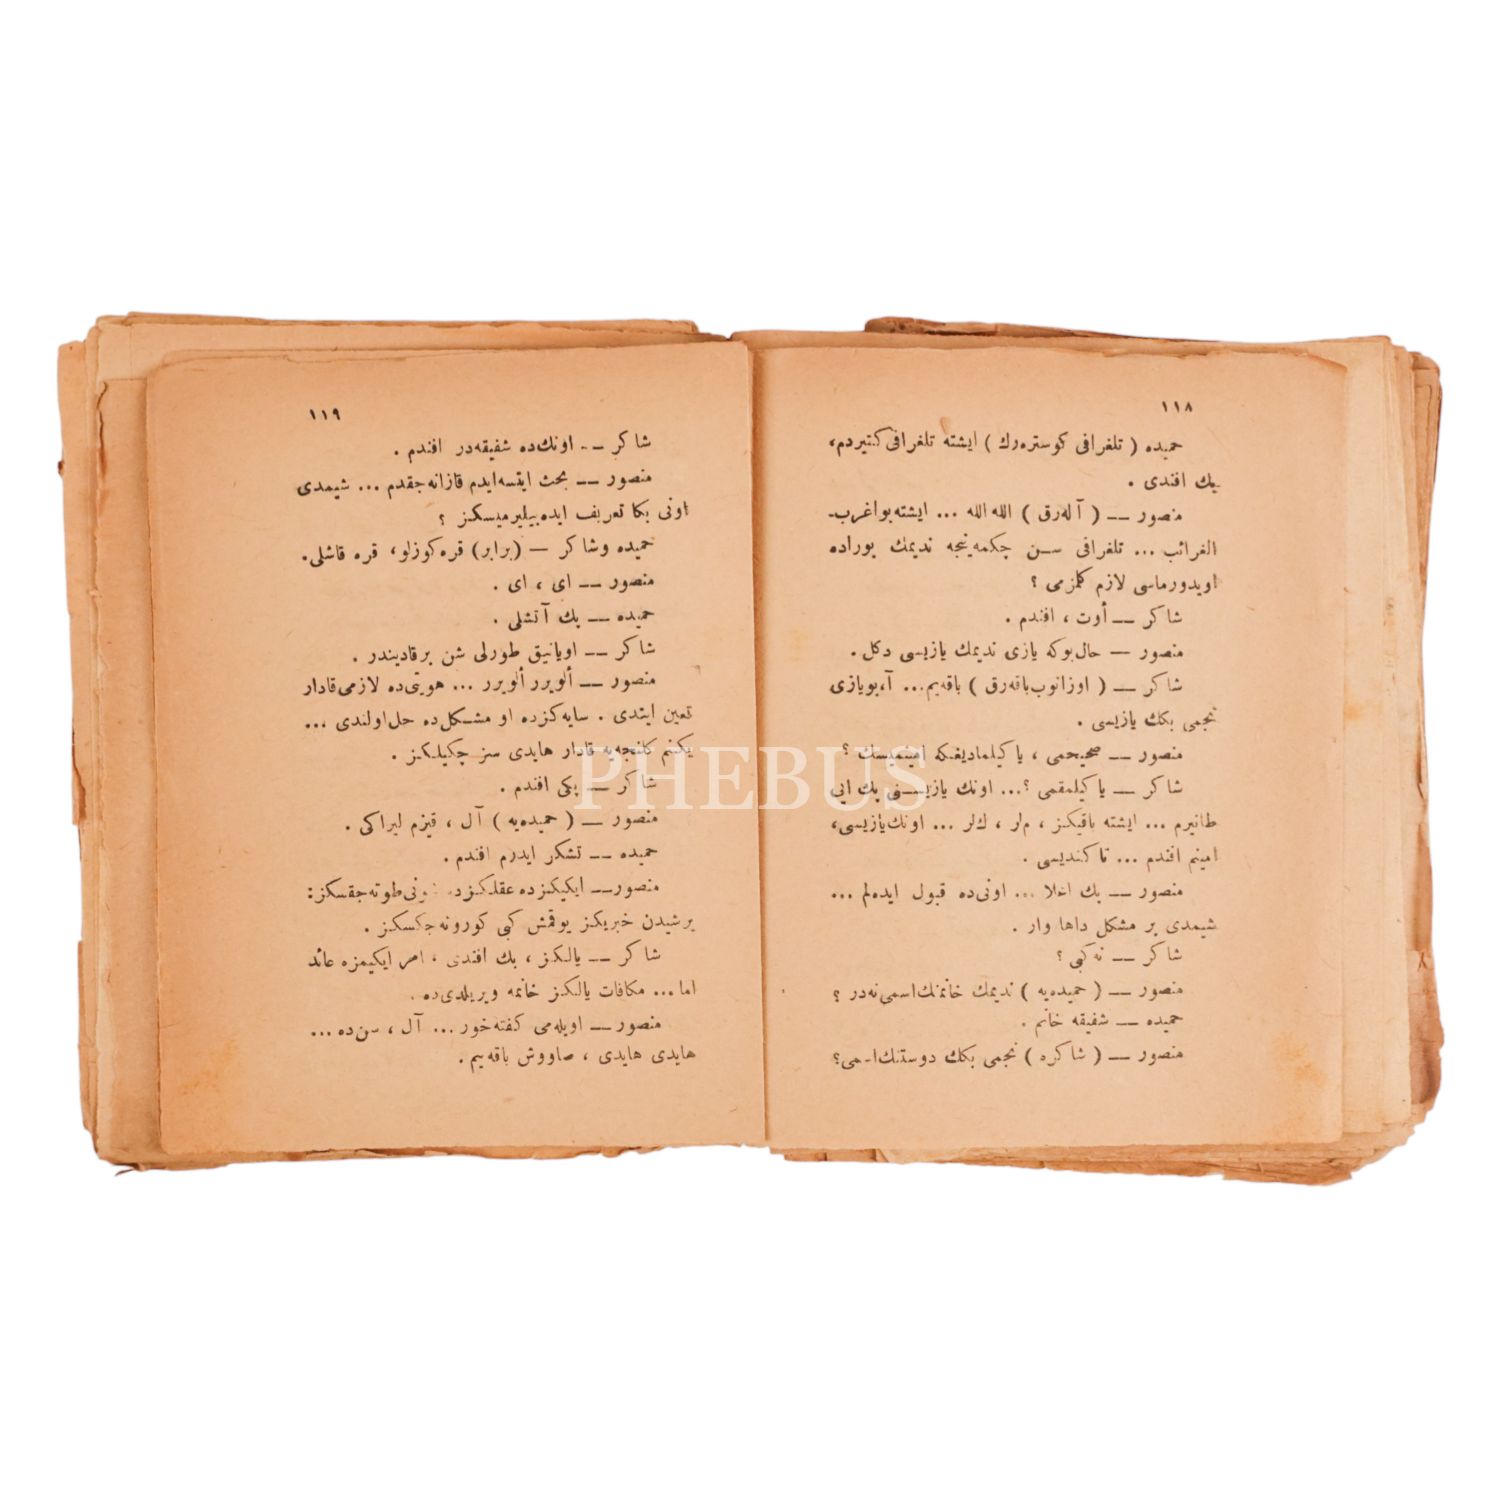 ١١٨
حميده ( تلغرافى كوستره‌رك ) ايشته تلغرافى كتيردم،
بك افندى .
منصور — ( آله‌رق ) الله الله ... ايشته بو اغرب‌ـ
الغرائب ... تلغرافى سن چكمه‌ينجه نديمك بوراده
اويدورماسى لازم كلمزمى ؟
شاكر — أوت ، افندم .
منصور — حال بوكه يازى نديمك يازيسى دكل .
شاكر — ( اوزانوب باقه‌رق ) باقه‌يم... آ، بو يازى
نجمى بكك يازيسى .
منصور — صحيحمى ، ياكيلماديغكه امينميسك ؟
شاكر — ياكيلمقمى ؟... اونك يازيسنى پك ايى
طانيرم ... ايشته باقيكز ، م‌لر ، ك‌لر ... اونك يازيسى،
امينم افندم ... تا كنديسى .
منصور — پك اعلا ... اونى‌ده قبول ايده‌لم ...
شيمدى بر مشكل داها وار .
شاكر — نه كبى ؟
منصور — ( حميده‌يه ) نديمك خانمنك اسمى نه‌در ؟
حميده — شفيقه خانم .
منصور — ( شاكره ) نجمى بكك دوستنك اسمى؟
١١٩
شاكر — اونك‌ده شفيقه‌در افندم .
منصور — بحث ايتسه‌ايدم قازانه‌جقدم ... شيمدى
اونى بكا تعريف ايده‌بيليرميسكز ؟
حميده و شاكر — (برابر) قره كوزلو، قره قاشلى.
منصور — اى ، اى .
حميده — پك آتشلى .
شاكر — اويانيق طورلى شن بر قاديندر .
منصور — ألويرر ألويرر ... هويتى‌ده لازمى قادار
تعين ايتدى . سايه‌كزده او مشكل‌ده حل اولندى ...
يكنم كلنجه‌يه قادار هايدى سز چكيليكز .
شاكر — پكى افندم .
منصور — ( حميده‌يه ) آل ، قيزم ليراكى .
حميده — تشكر ايدرم افندم .
منصور — ايكيكزده عقلكزده شونى طوته‌جقسكز:
برشيدن خبريكز يوقمش كبى كورونه‌جكسكز .
شاكر — يالكز ، بك افندى ، امر ايكيمزه عائد
اما... مكافات يالكز خانمه ويريلدى‌ده .
منصور — اويله‌مى كفته‌خور ... آل ، سن‌ده ...
هايدى هايدى ، صاووش باقه‌ييم .
PHEBUS